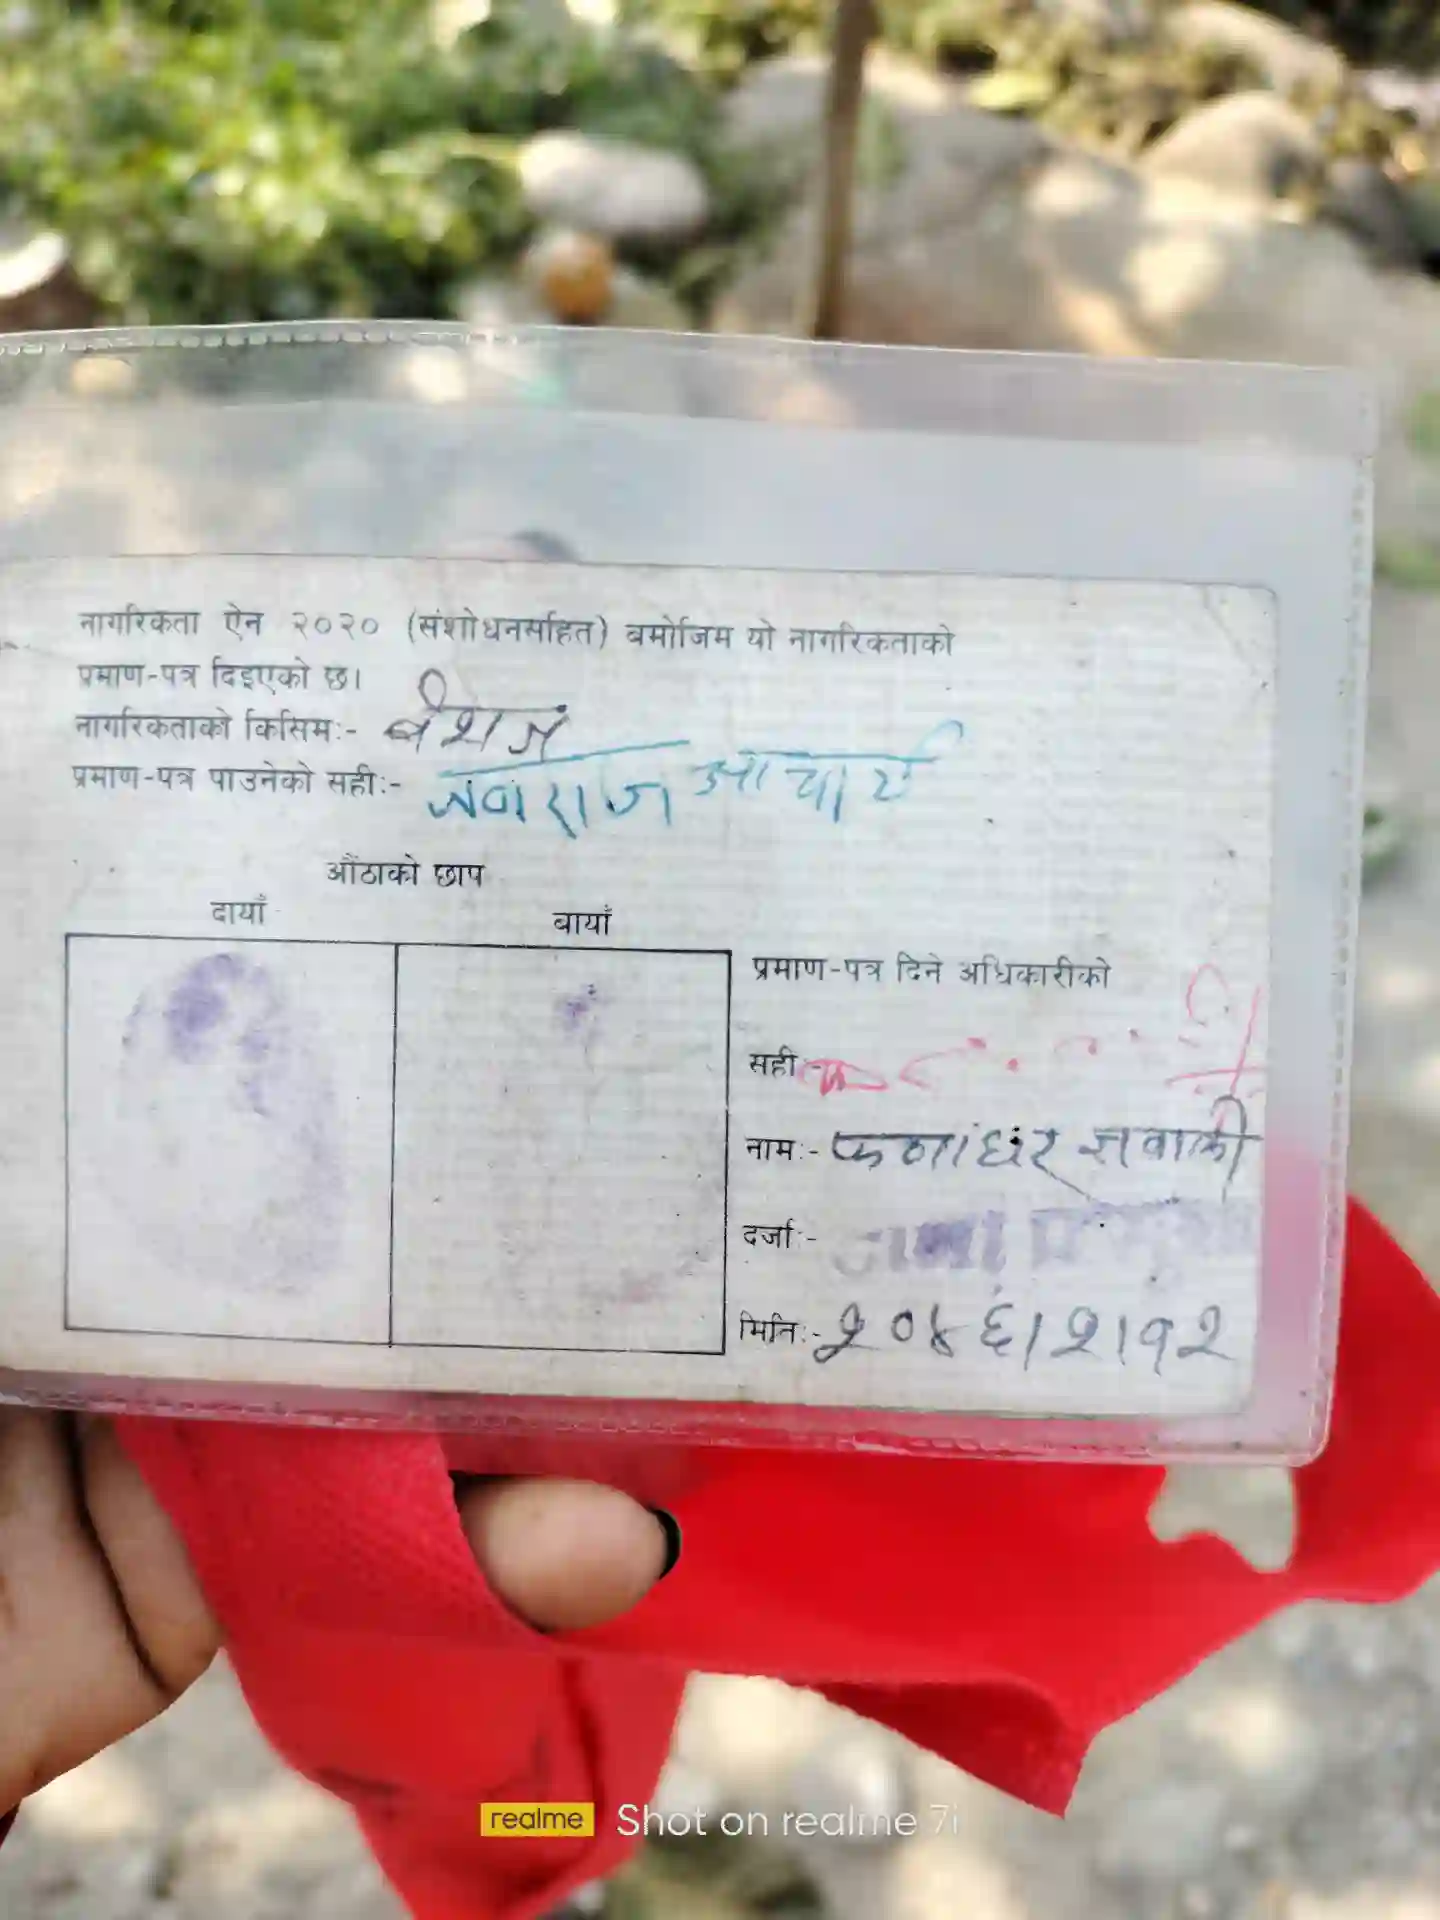 नागरिकता ऐन २०२० (संशोधनसहित) बमोजिम यो नागरिकताको
प्रमाण-पत्र दिइएको छ।
नागरिकताको किसिम:- वंशज
प्रमाण-पत्र पाउनेको सही:- आचार्य
औंठाको छाप
दायाँ बायाँ
प्रमाण-पत्र दिने अधिकारीको
सही:-
नाम:- ज्ञवाली
दर्जा:-
मिति:- २०४६।२।१२
realme Shot on realme 7i